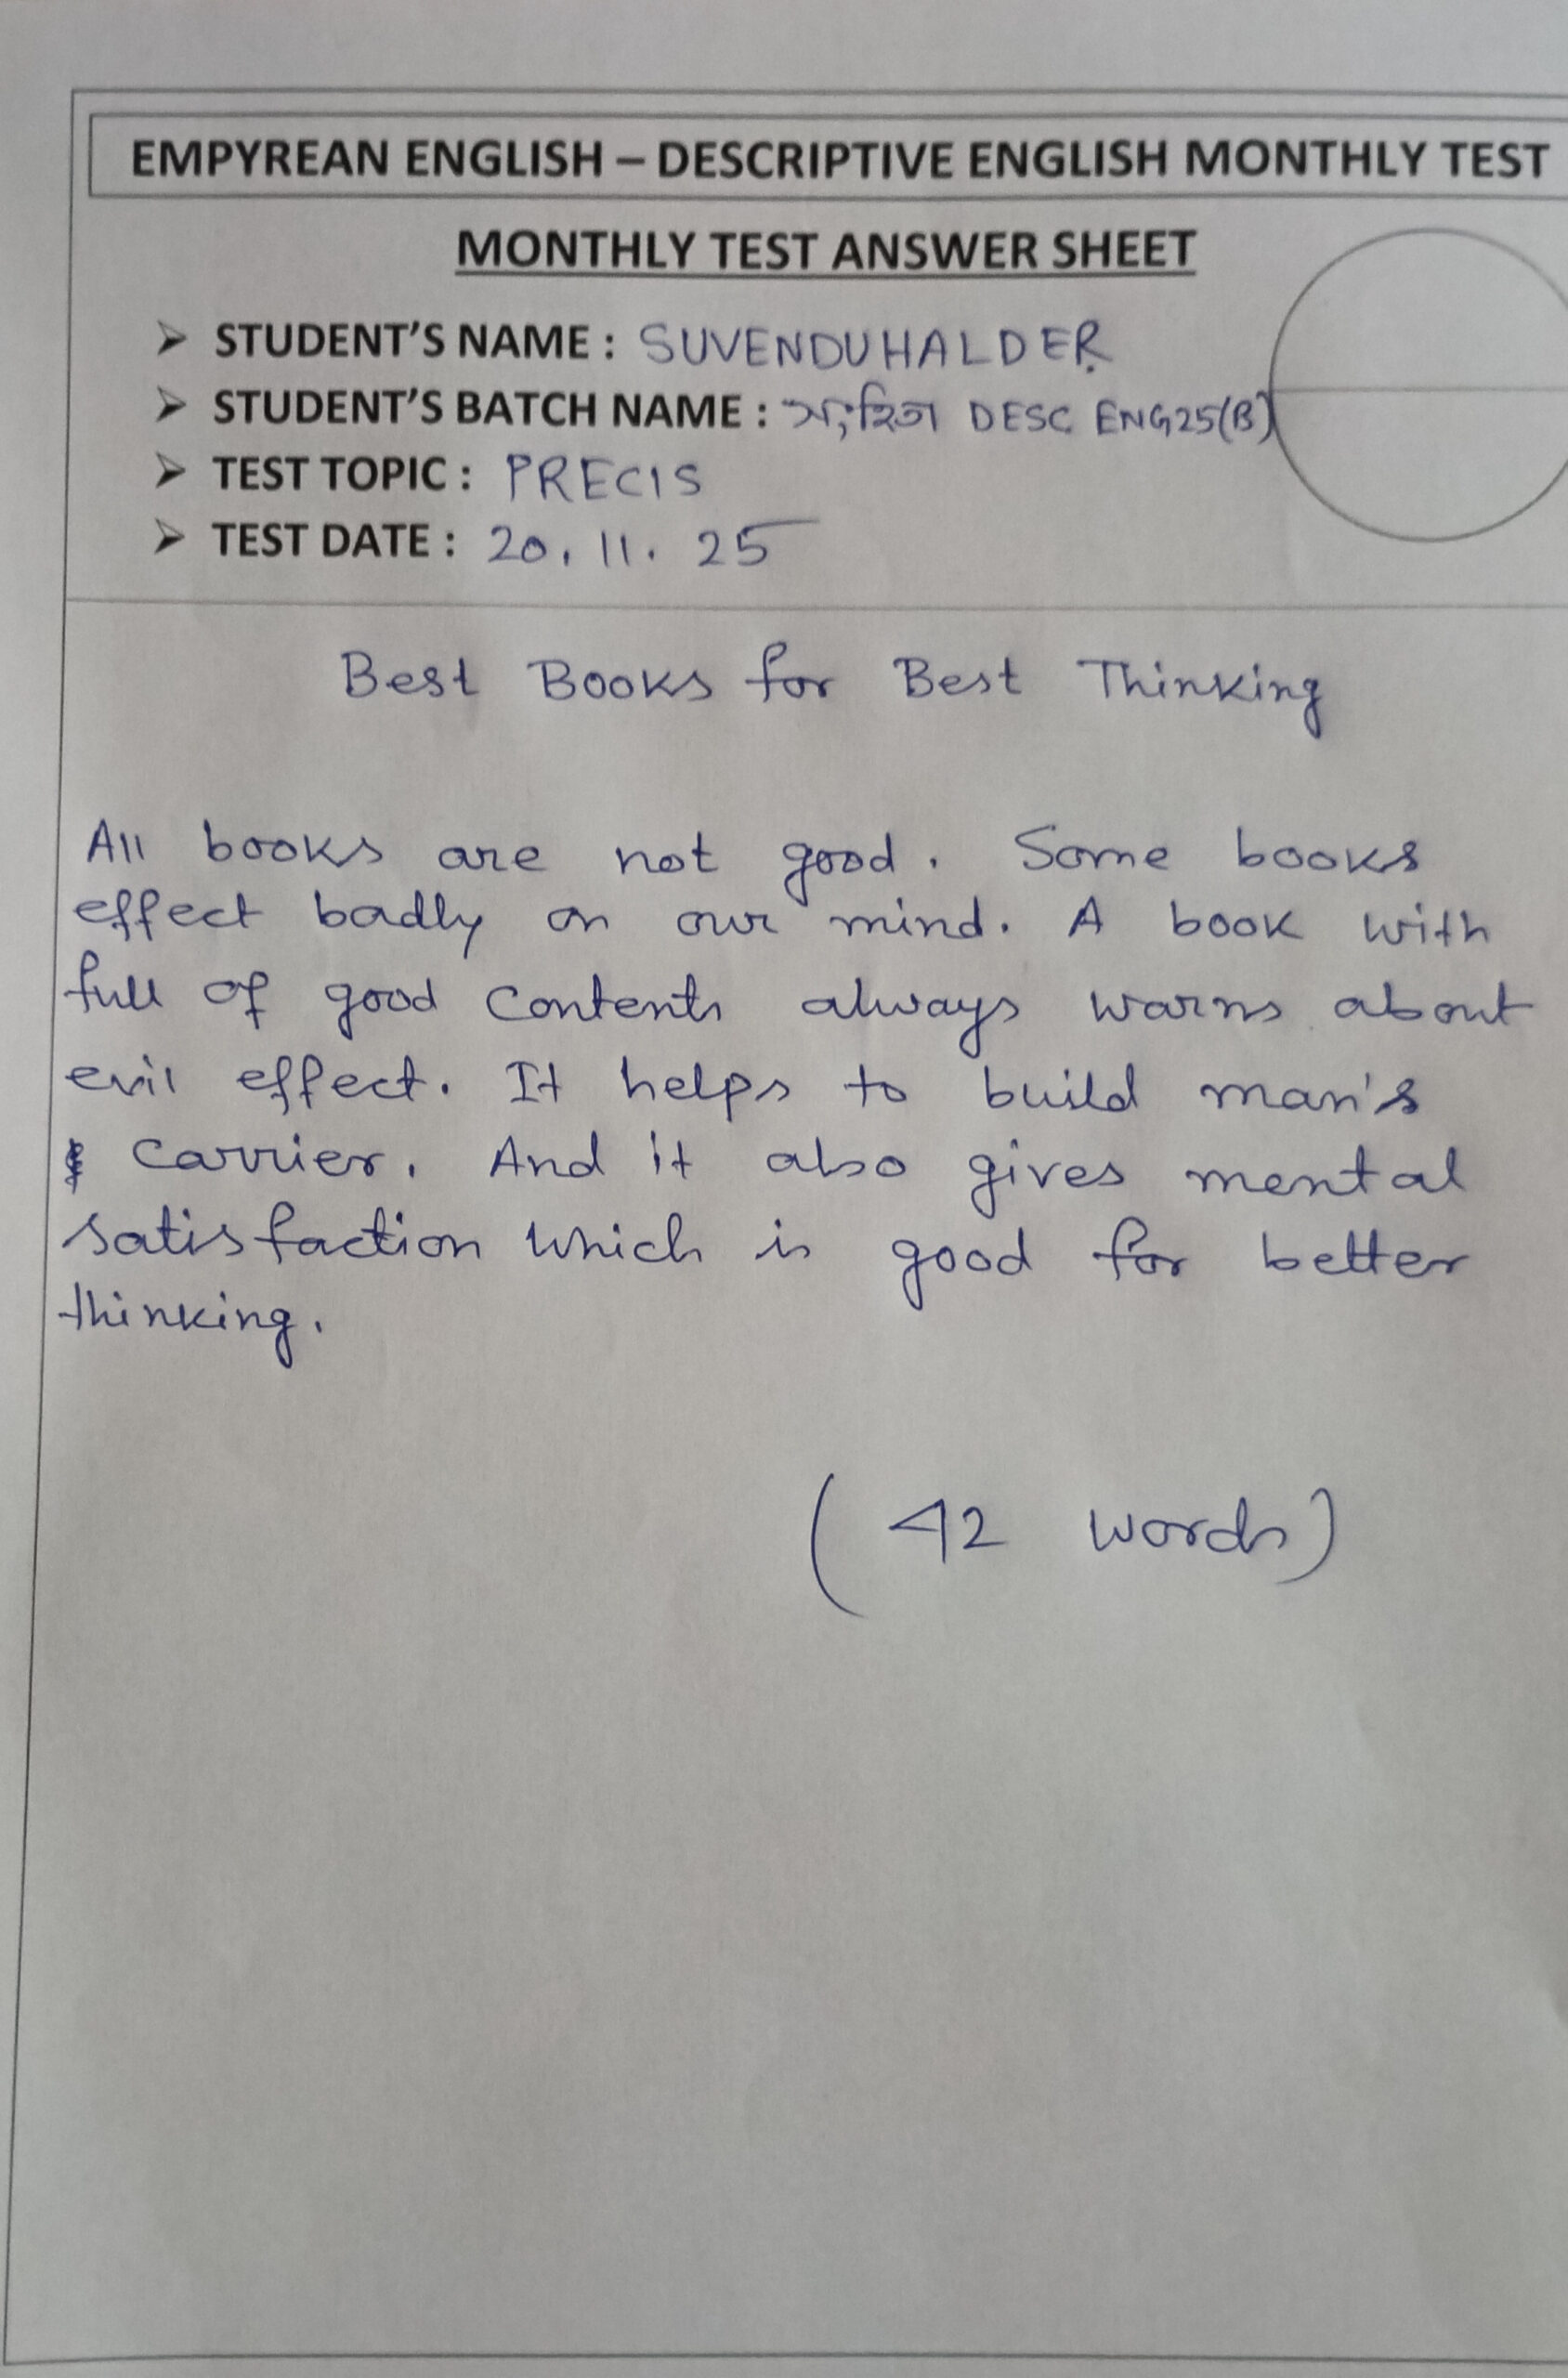 EMPYREAN ENGLISH – DESCRIPTIVE ENGLISH MONTHLY TEST
MONTHLY TEST ANSWER SHEET
➢ STUDENT'S NAME : SUVENDU HALDER
➢ STUDENT'S BATCH NAME : সংহিতা DESC ENG25(B)
➢ TEST TOPIC : PRECIS
➢ TEST DATE : 20.11.25
Best Books for Best Thinking
All books are not good. Some books
effect badly on our mind. A book with
full of good contents always warns about
evil effect. It helps to build man's
carrier. And it also gives mental
satisfaction which is good for better
thinking.
(42 words)